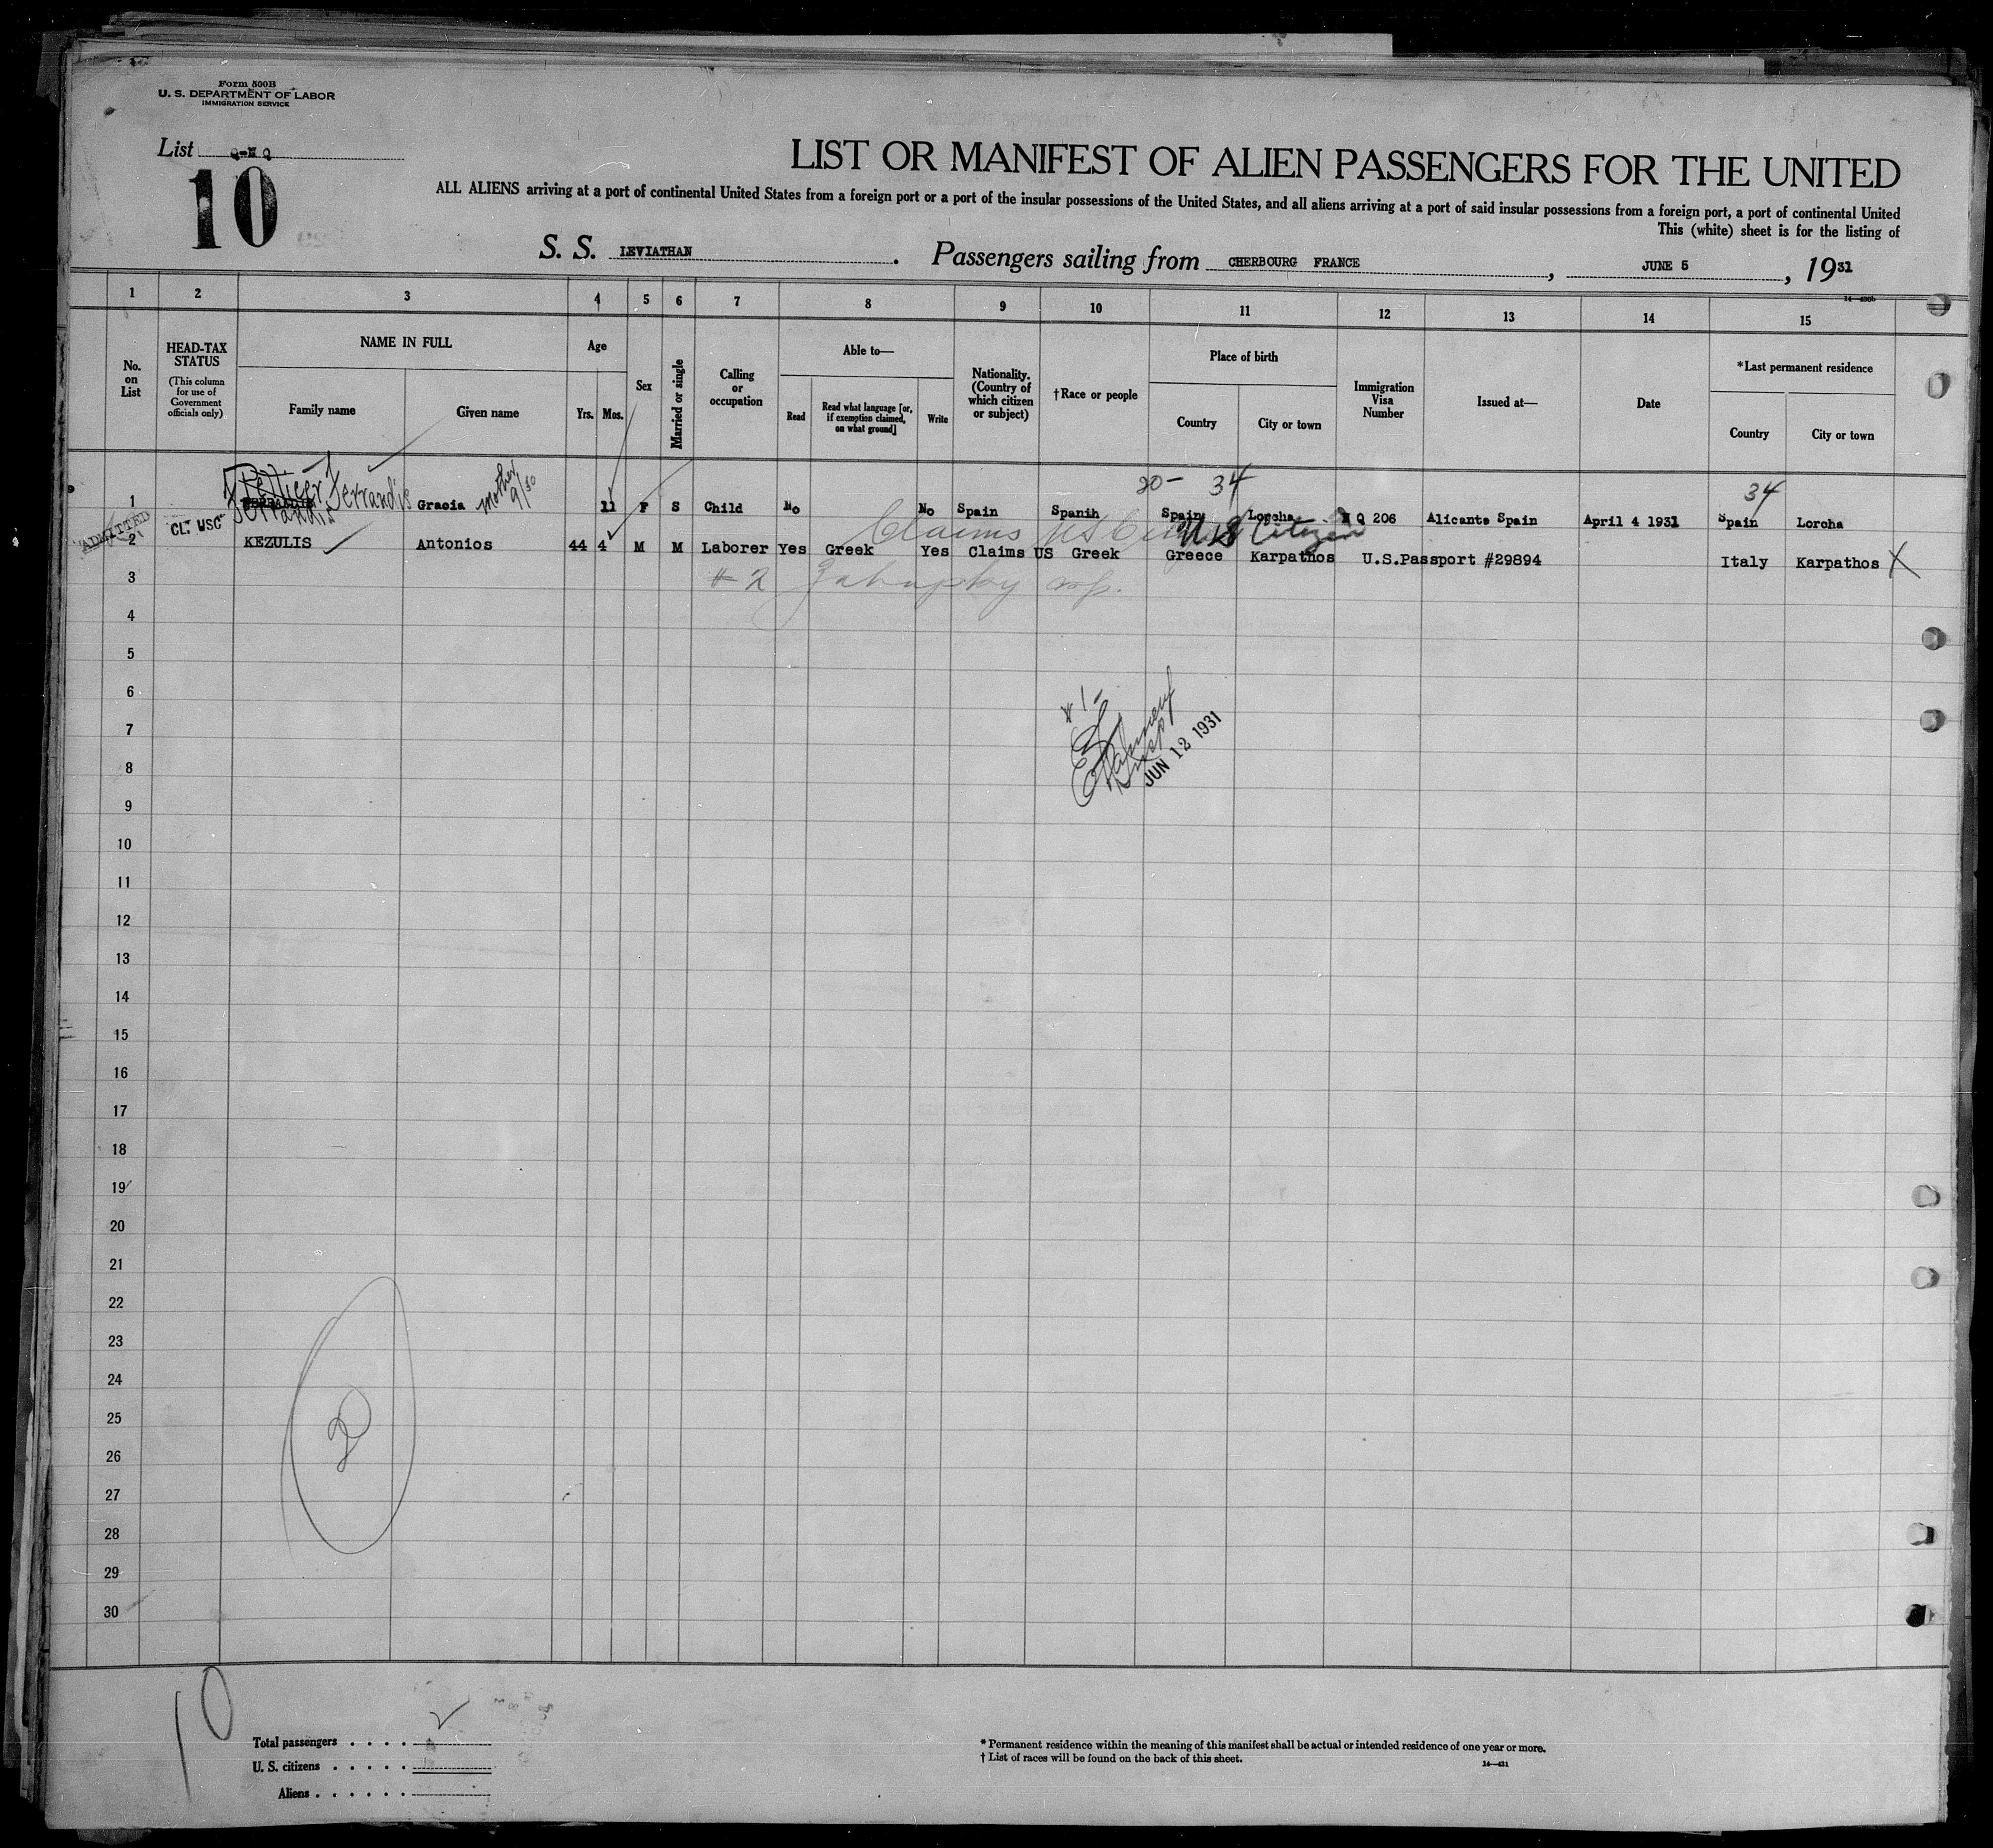 Form 500B
U. S. DEPARTMENT OF LABOR
IMMIGRATION SERVICE
List Q-N Q
10
LIST OR MANIFEST OF ALIEN PASSENGERS FOR THE UNITED
ALL ALIENS arriving at a port of continental United States from a foreign port or a port of the insular possessions of the United States, and all aliens arriving at a port of said insular possessions from a foreign port, a port of continental United
This (white) sheet is for the listing of
S. S. LEVIATHAN . Passengers sailing from CHERBOURG FRANCE , JUNE 5 , 1931
1 2 3 4 5 6 7 8 9 10 11 12 13 14 15
No. on List
HEAD-TAX STATUS (This column for use of Government officials only)
NAME IN FULL
Family name
Given name
Age
Yrs. Mos.
Sex
Married or single
Calling or occupation
Able to—
Read
Read what language [or, if exemption claimed, on what ground]
Write
Nationality. (Country of which citizen or subject)
†Race or people
Place of birth
Country
City or town
Immigration Visa Number
Issued at—
Date
*Last permanent residence
Country
City or town
30- 34
34
1 Ferrandis Ferrandis Gracia Mother 9/30 11 F S Child No No Spain Spanih Spain Lorcha N Q 206 Alicante Spain April 4 1931 Spain Lorcha
ADMITTED CL. USC
Claims US
US Citizen
2 KEZULIS Antonios 44 4 M M Laborer Yes Greek Yes Claims US Greek Greece Karpathos U.S.Passport #29894 Italy Karpathos X
3 # 2
4
5
6
7
8
9
10
11
12
13
14
15
16
17
18
19
20
21
22
23
24
25
26
27
28
29
30
# 1-
Insp
JUN 12 1931
10
Total passengers . . . .
U. S. citizens . . . . .
Aliens . . . . . .
* Permanent residence within the meaning of this manifest shall be actual or intended residence of one year or more.
† List of races will be found on the back of this sheet.
14—431